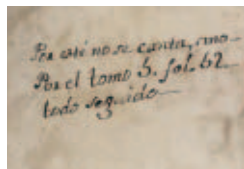 Por esté no se canta, sino
Por el tomo 5. fol. 62.
todo seguido